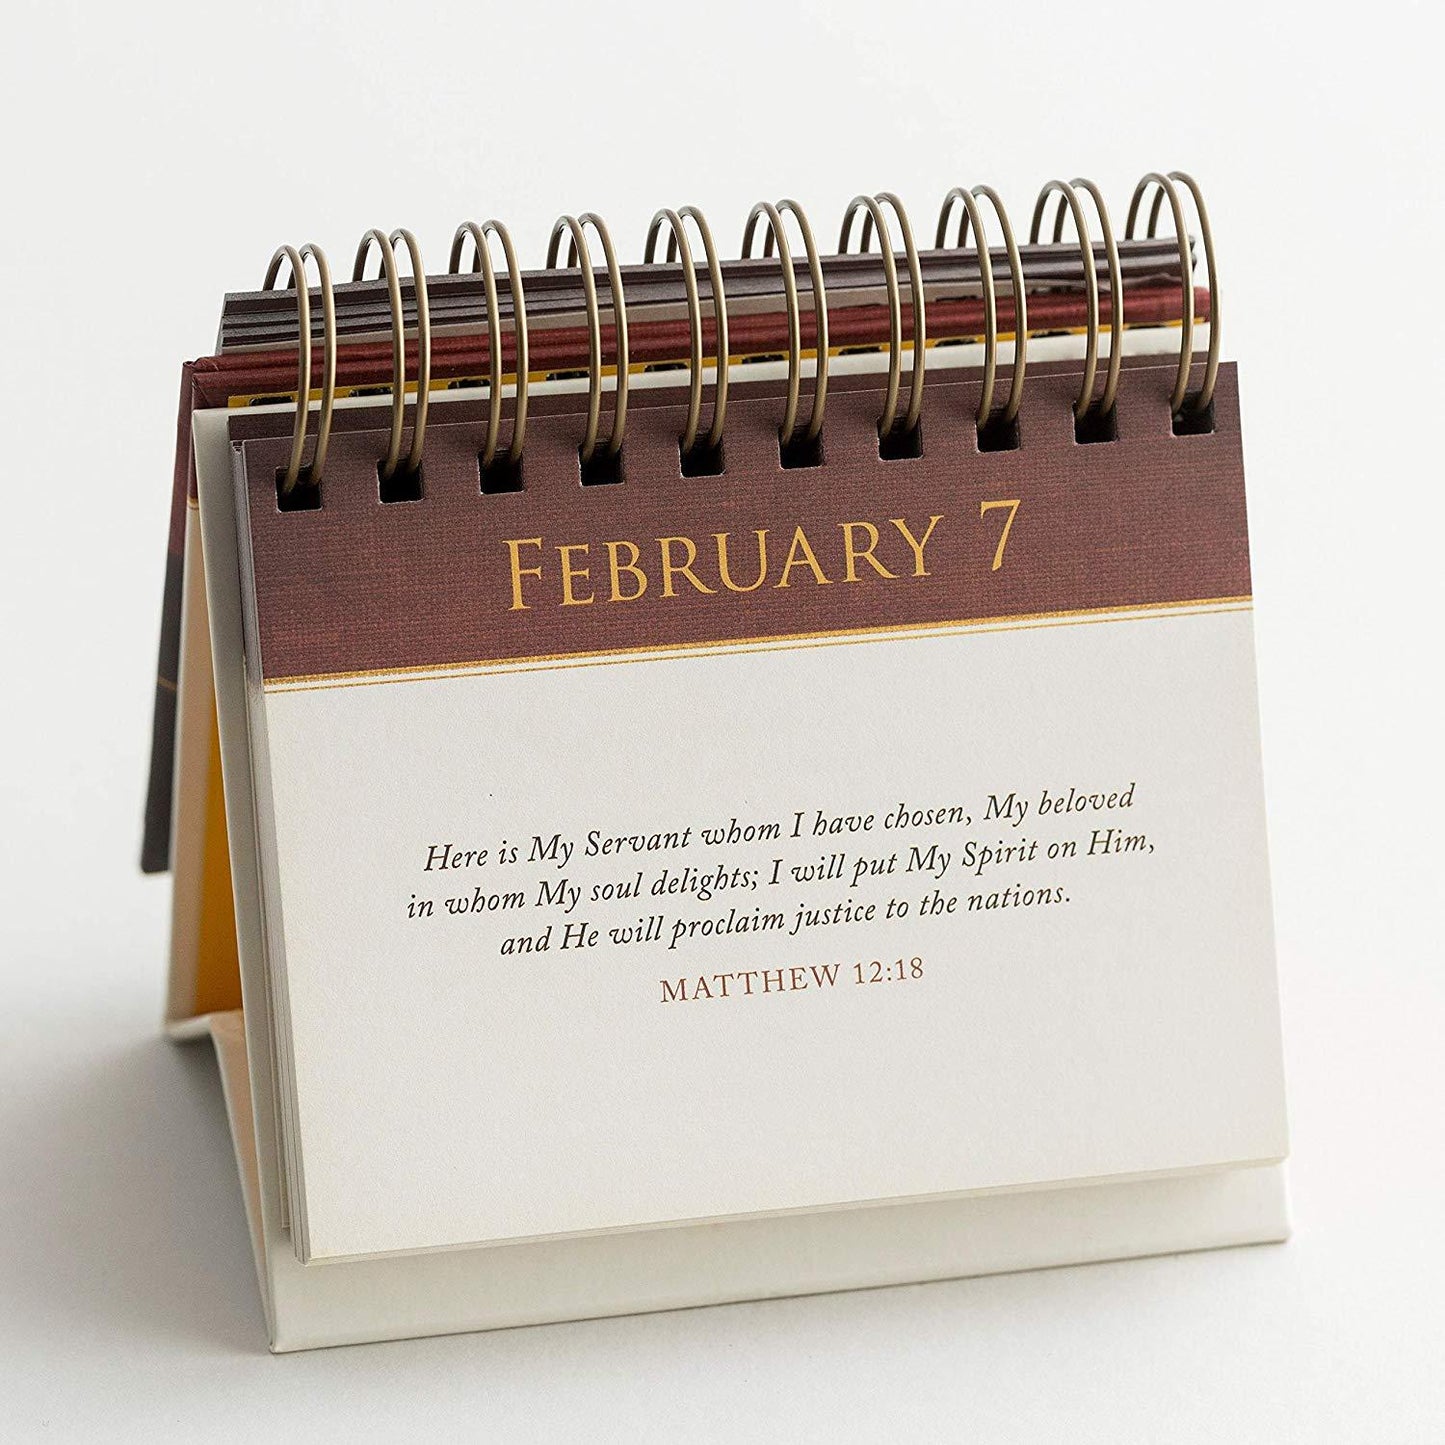 FEBRUARY 7
Here is My Servant whom I have chosen, My beloved
in whom My soul delights; I will put My Spirit on Him,
and He will proclaim justice to the nations.
MATTHEW 12:18